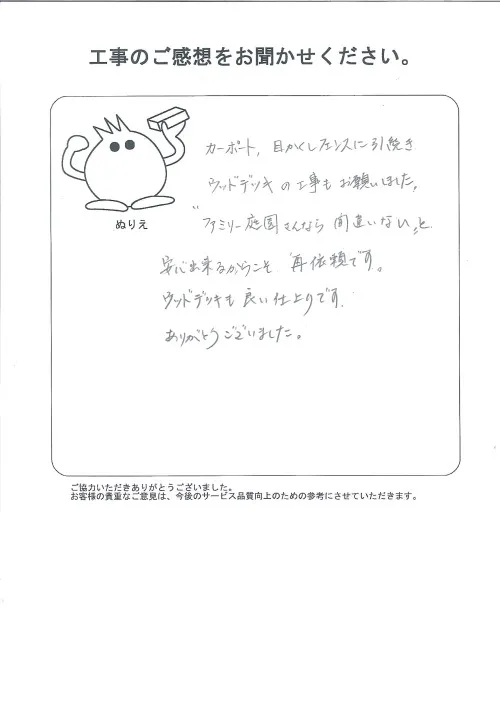 工事のご感想をお聞かせください。
カーポート、目かくしフェンスに引続き
ウッドデッキの工事もお願いしました。
"ファミリー庭園さんなら間違いない"と
ぬりえ
安心出来るからこそ、再依頼です。
ウッドデッキも良い仕上りです。
ありがとうございました。
ご協力いただきありがとうございました。
お客様の貴重なご意見は、今後のサービス品質向上のための参考にさせていただきます。